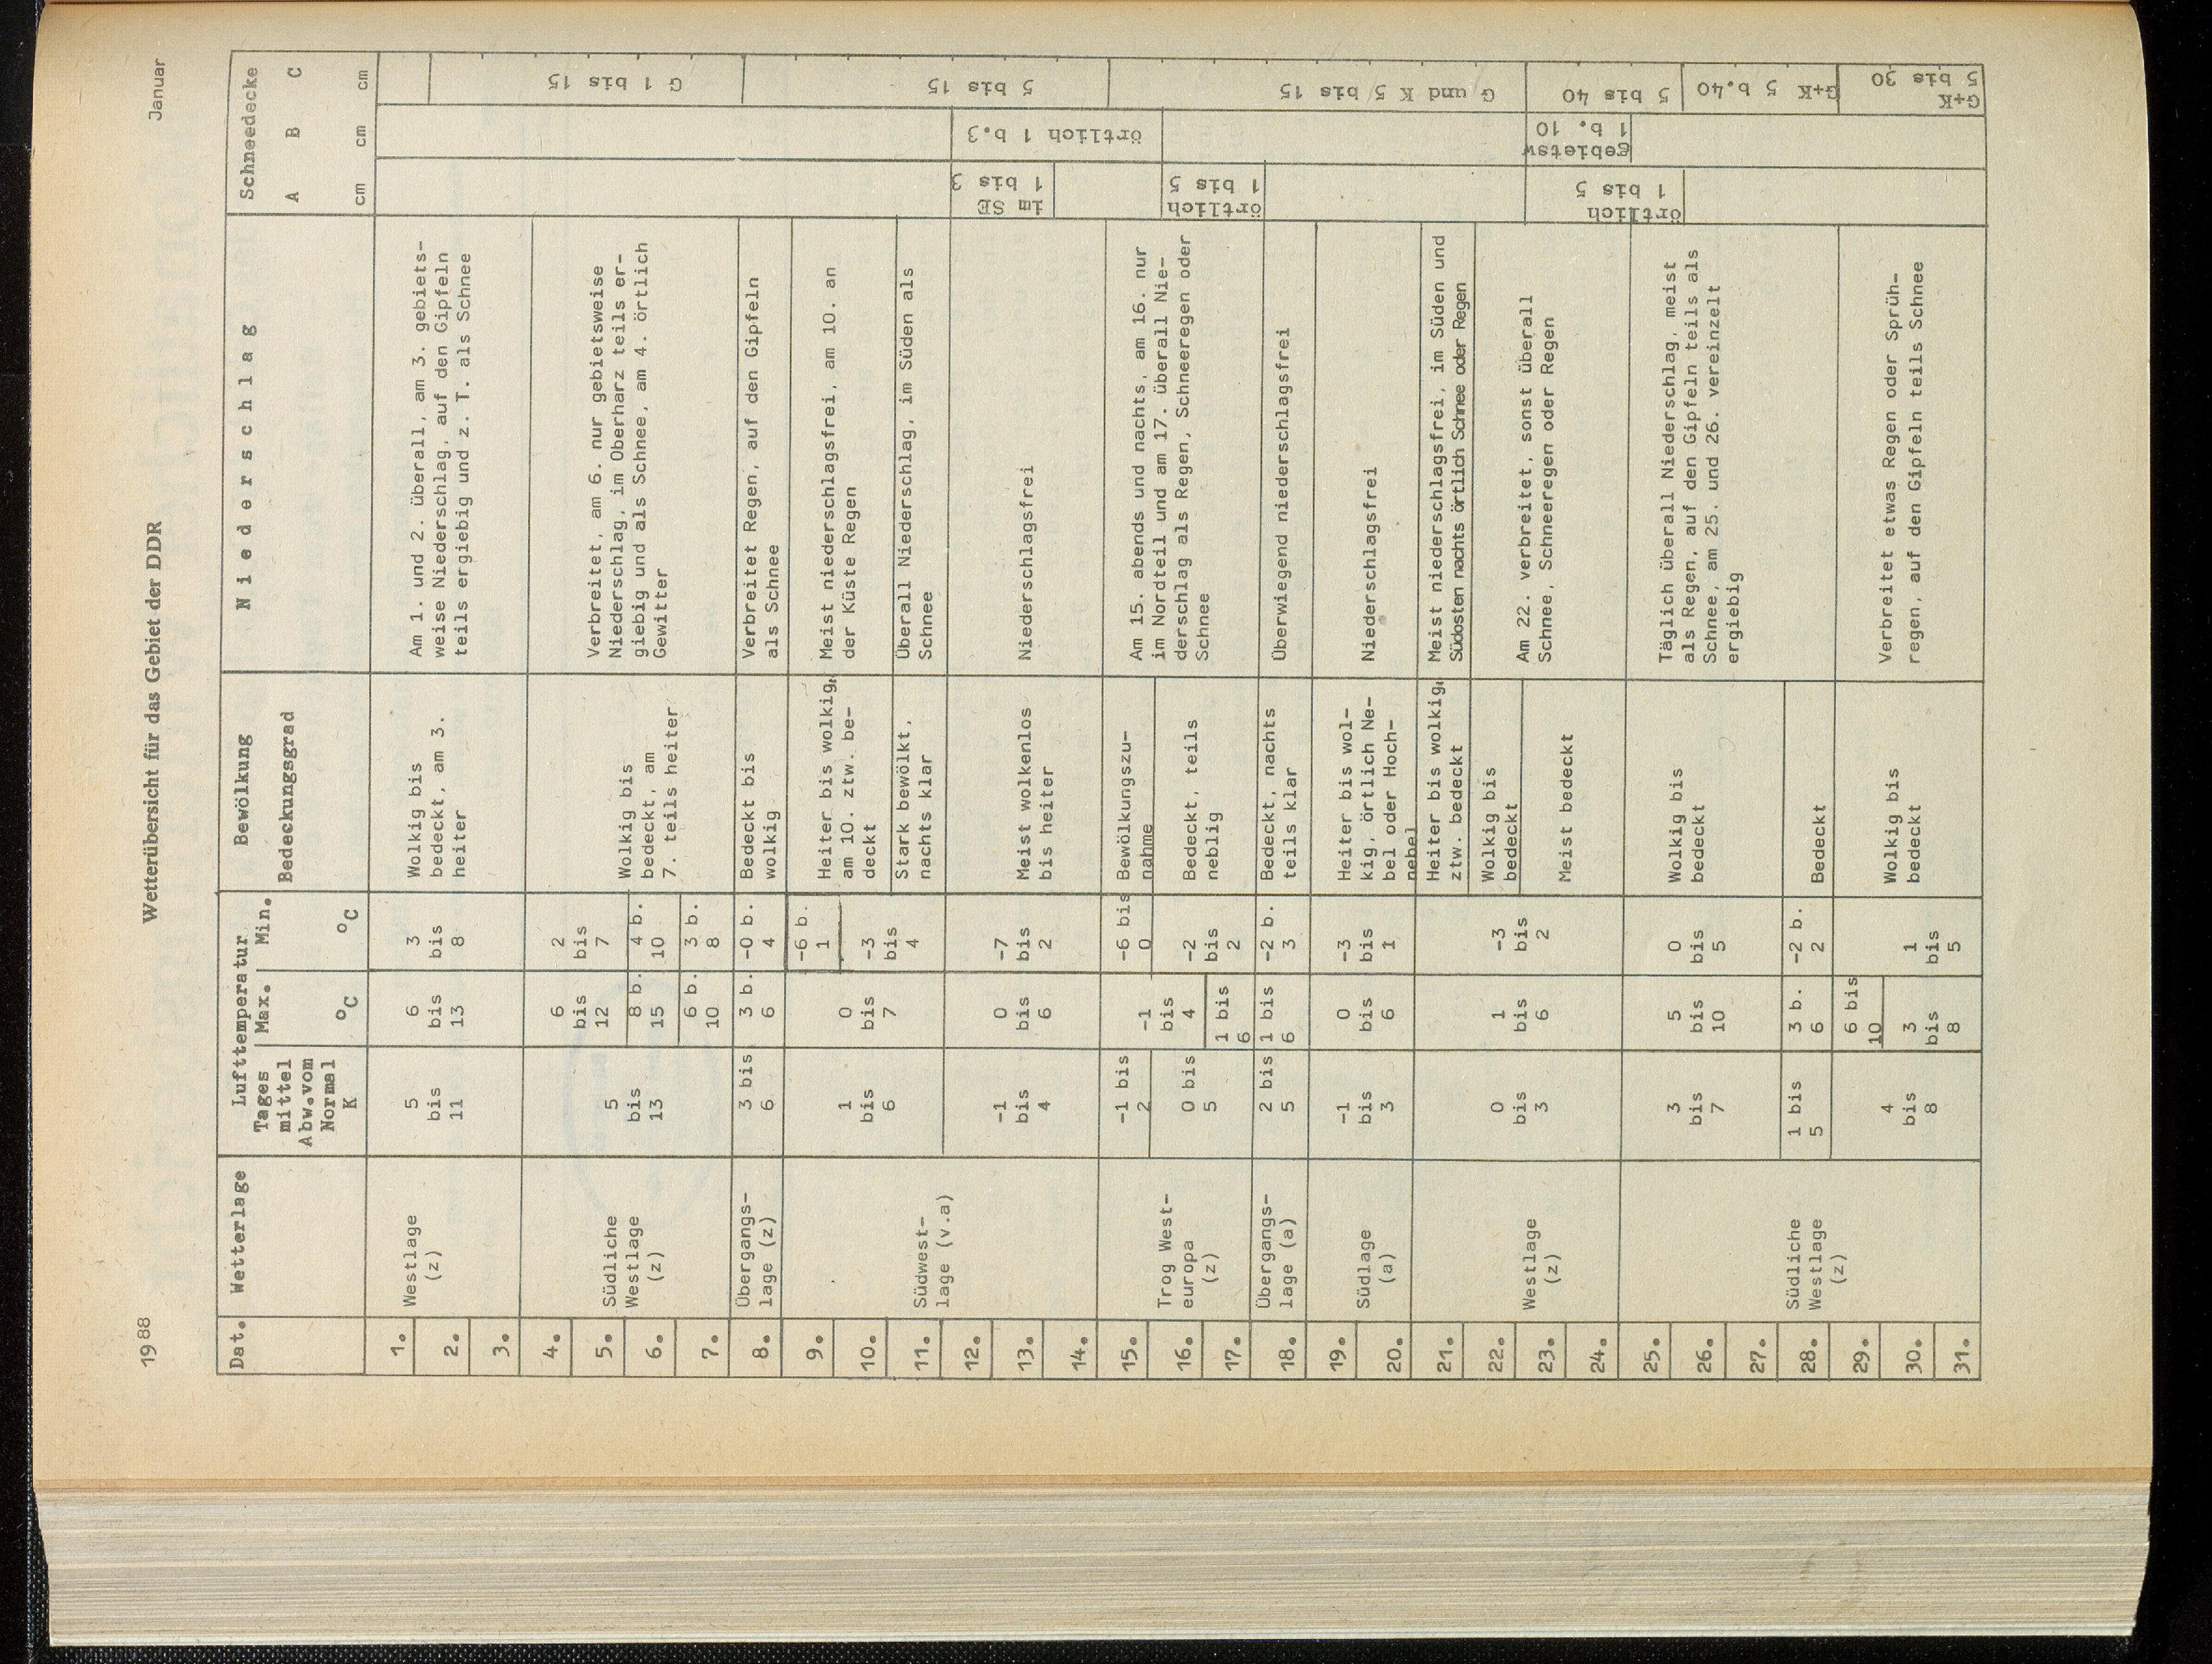 1988 Wetterübersicht für das Gebiet der DDR Januar
Dat. Wetterlage Lufttemperatur Bewölkung Niederschlag Schneedecke
Tages Max. Min. Bedeckungsgrad A B C
mittel
Abw.vom
Normal
K °C °C cm cm cm
1.
2.
3.
Westlage
(z)
5
bis
11
6
bis
13
3
bis
8
Wolkig bis
bedeckt, am 3.
heiter
Am 1. und 2. überall, am 3. gebiets-
weise Niederschlag, auf den Gipfeln
teils ergiebig und z. T. als Schnee
4.
5.
6.
7.
Südliche
Westlage
(z)
5
bis
13
6
bis
12
8 b.
15
6 b.
10
2
bis
7
4 b.
10
3 b.
8
Wolkig bis
bedeckt, am
7. teils heiter
Verbreitet, am 6. nur gebietsweise
Niederschlag, im Oberharz teils er-
giebig und als Schnee, am 4. örtlich
Gewitter
G 1 bis 15
8.
Übergangs-
lage (z)
3 bis
6
3 b.
6
-0 b.
4
Bedeckt bis
wolkig
Verbreitet Regen, auf den Gipfeln
als Schnee
9.
10.
11.
12.
13.
14.
Südwest-
lage (v.a)
1
bis
6
0
bis
7
-6 b.
1
-3
bis
4
Heiter bis wolkig,
am 10. ztw. be-
deckt
Meist niederschlagsfrei, am 10. an
der Küste Regen
Stark bewölkt,
nachts klar
Überall Niederschlag, im Süden als
Schnee
-1
bis
4
0
bis
6
-7
bis
2
Meist wolkenlos
bis heiter
Niederschlagsfrei
im SE
1 bis 3
örtlich 1 b.3
5 bis 15
15.
16.
17.
Trog West-
europa
(z)
-1 bis
2
0 bis
5
-1
bis
4
1 bis
6
-6 bis
0
-2
bis
2
Bewölkungszu-
nahme
Bedeckt, teils
neblig
Am 15. abends und nachts, am 16. nur
im Nordteil und am 17. überall Nie-
derschlag als Regen, Schneeregen oder
Schnee
örtlich
1 bis 5
18.
Übergangs-
lage (a)
2 bis
5
1 bis
6
-2 b.
3
Bedeckt, nachts
teils klar
Überwiegend niederschlagsfrei
19.
20.
Südlage
(a)
-1
bis
3
0
bis
6
-3
bis
1
Heiter bis wol-
kig, örtlich Ne-
bel oder Hoch-
nebel
Niederschlagsfrei
G und K 5 bis 15
21.
22.
23.
24.
Westlage
(z)
0
bis
3
1
bis
6
-3
bis
2
Heiter bis wolkig,
ztw. bedeckt
Meist niederschlagsfrei, im Süden und
Südosten nachts örtlich Schnee oder Regen
Wolkig bis
bedeckt
Meist bedeckt
Am 22. verbreitet, sonst überall
Schnee, Schneeregen oder Regen
örtlich
1 bis 5
gebietsw
1 b. 10
5 bis 40
25.
26.
27.
28.
29.
30.
31.
Südliche
Westlage
(z)
3
bis
7
5
bis
10
0
bis
5
Wolkig bis
bedeckt
Täglich überall Niederschlag, meist
als Regen, auf den Gipfeln teils als
Schnee, am 25. und 26. vereinzelt
ergiebig
G+K 5 b.40
1 bis
5
3 b.
6
-2 b.
2
Bedeckt
4
bis
8
6 bis
10
3
bis
8
1
bis
5
Wolkig bis
bedeckt
Verbreitet etwas Regen oder Sprüh-
regen, auf den Gipfeln teils Schnee
G+K
5 bis 30